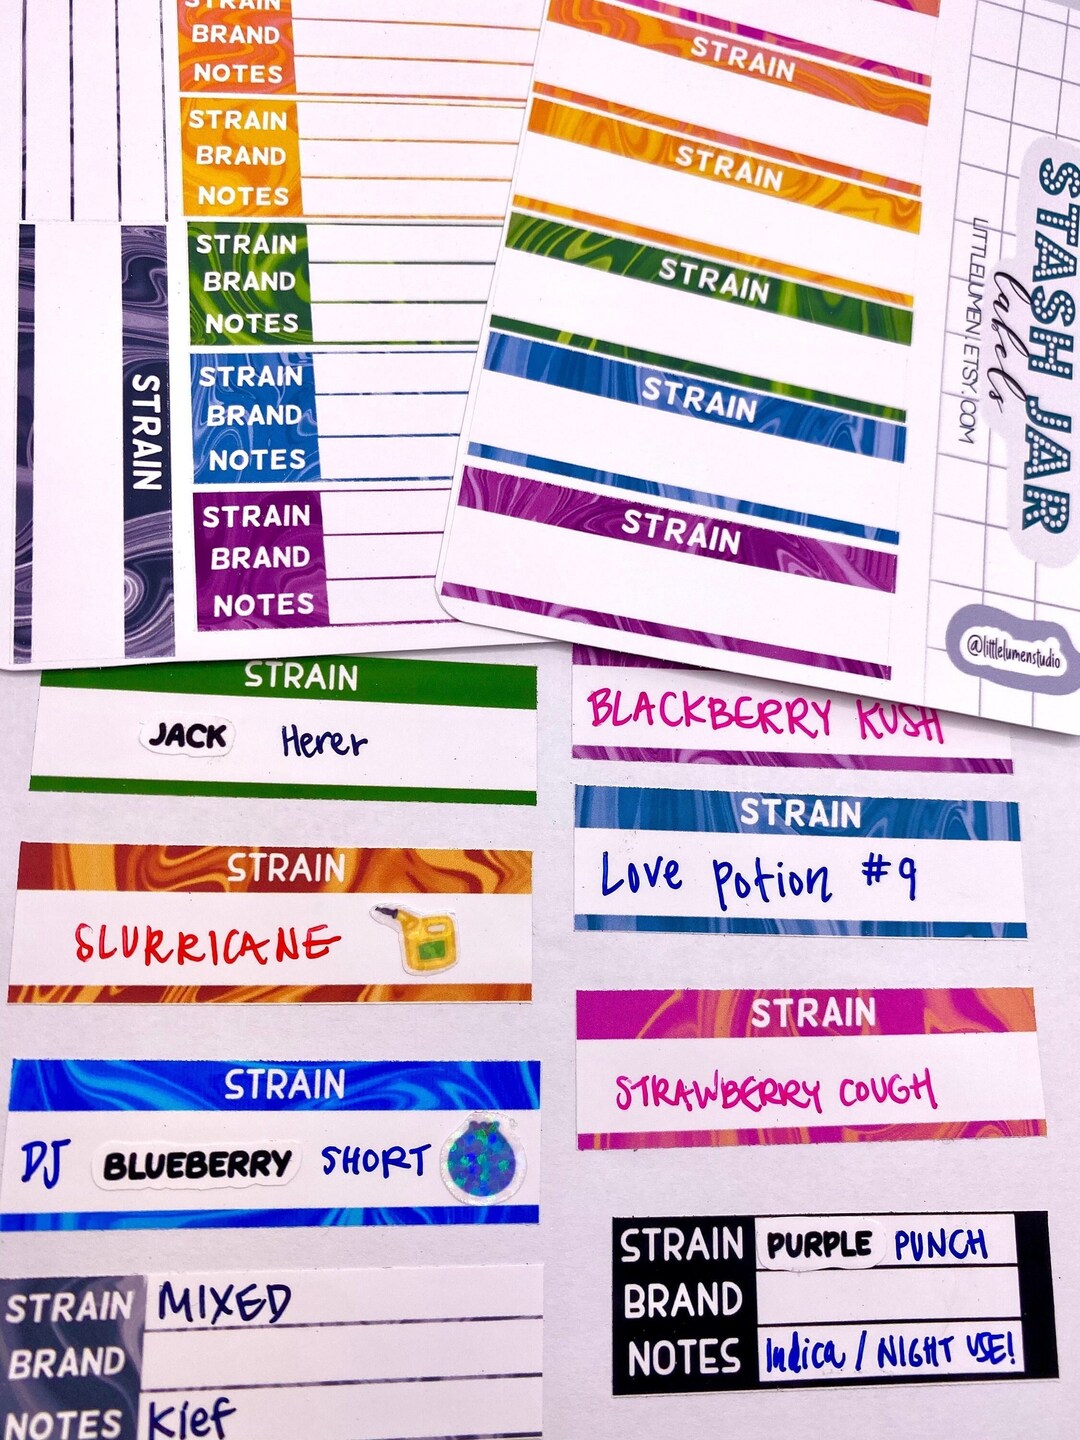 STRAIN
BRAND
NOTES
STRAIN
BRAND
NOTES
STRAIN
BRAND
NOTES
STRAIN
BRAND
NOTES
STRAIN
BRAND
NOTES
STRAIN
STRAIN
STRAIN
STRAIN
STRAIN
STRAIN
STASH JAR
labels
LITTLELUMEN | ETSY.COM
@littlelumenstudio
STRAIN
JACK Herer
BLACKBERRY KUSH
STRAIN
Love Potion #9
STRAIN
SLURRICANE
STRAIN
STRAWBERRY COUGH
STRAIN
DJ BLUEBERRY SHORT
STRAIN PURPLE PUNCH
BRAND
NOTES Indica / NIGHT USE!
STRAIN MIXED
BRAND
NOTES Kief